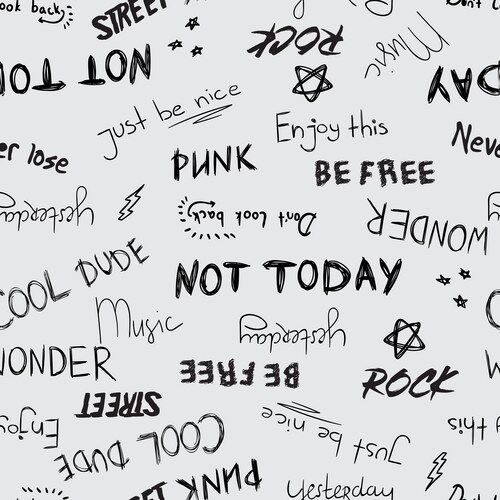 ook back
STREET
ROCK
Music
NOT TO
DAY
just be nice
Enjoy this
Never
er lose
PUNK
BE FREE
yesterday
Don't look back
WONDER
COOL DUDE
NOT TODAY
Music
yesterday
WONDER
BE FREE
ROCK
STREET
just be nice
Enjoy
this
COOL DUDE
PUNK
EET
Yesterday